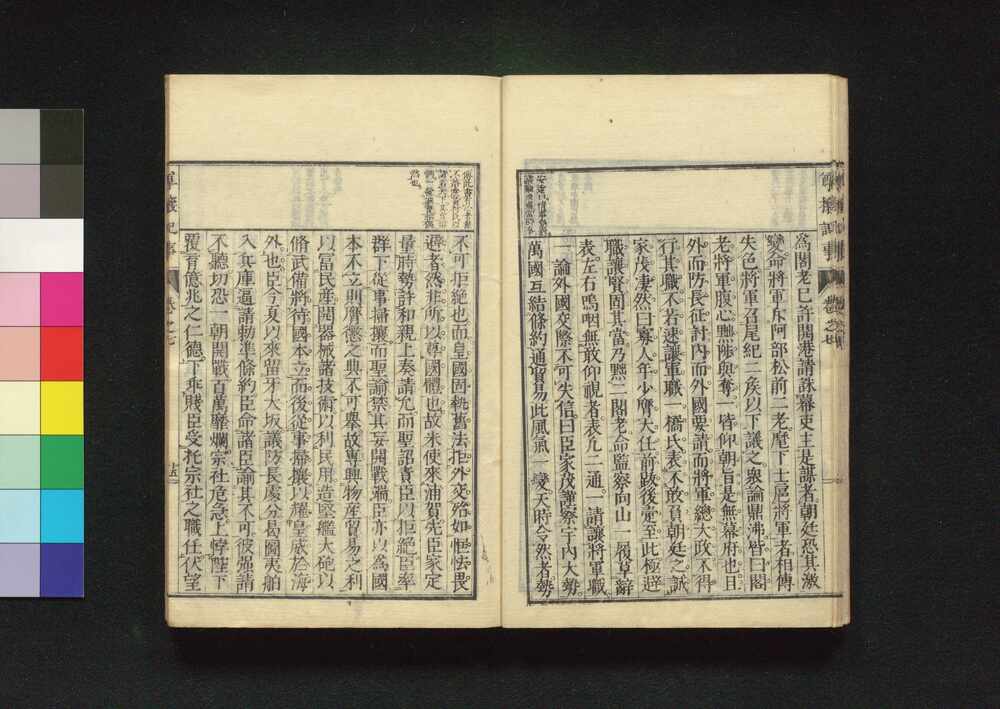 為閣老已許開港請誅幕吏主是謀者朝廷恐其激
變命將軍斥阿部松前二老麾下士扈將軍者相傳
失色將軍召尾紀二矦以下議之衆論鼎沸皆曰閣
老將軍腹心黜陟與奪一皆仰朝旨是無幕府也且
外而防長征討內而外國要請而將軍總大政不得
行其職不若速讓軍職一橋氏表不敢負朝廷之誠
家茂凄然曰寡人年少膺大任前跋後疐至此極避
職讓賢固其當乃黜二閣老命監察向山一履草辭
表左右嗚咽無敢仰視者表凡二通一請讓將軍職
一論外國交際不可失信曰臣家茂謹察宇內大勢
萬國互結條約通貿易此風氣一變天時令然者勢
尊攘紀事
卷之七
不可拒絶也而皇國固執舊法拒外交殆如恇怯畏
避者然非所以尊國體也故米使來浦賀先臣家定
量時勢許和親上奏請允而聖詔責臣以拒絶臣率
群下從事掃攘而聖諭禁其妄開戰端臣亦以為國
本不立則膺懲之典不可舉故專興物產貿易之利
以富民產開器械諸技術以利民用造堅艦大砲以
脩武備將待國本立而後從事掃攘以耀皇威於海
外也臣今夏以來留牙大坂議防長處分曷圖夷舶
入兵庫逼請勅準條約臣命諸臣諭其不可彼强請
不聽切恐一朝開戰百萬靡爛宗社危急上悖陛下
覆育億兆之仁德下乖賤臣受托宗社之職任伏望
尊攘紀事
卷之七
十五